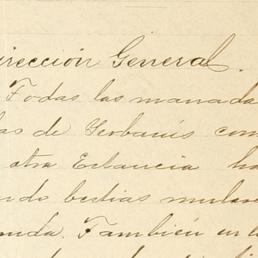 irección General.
Todas las manada
as de Serbanis com
otra Estancia ha
ndo bestias mulare
nuda. También en l